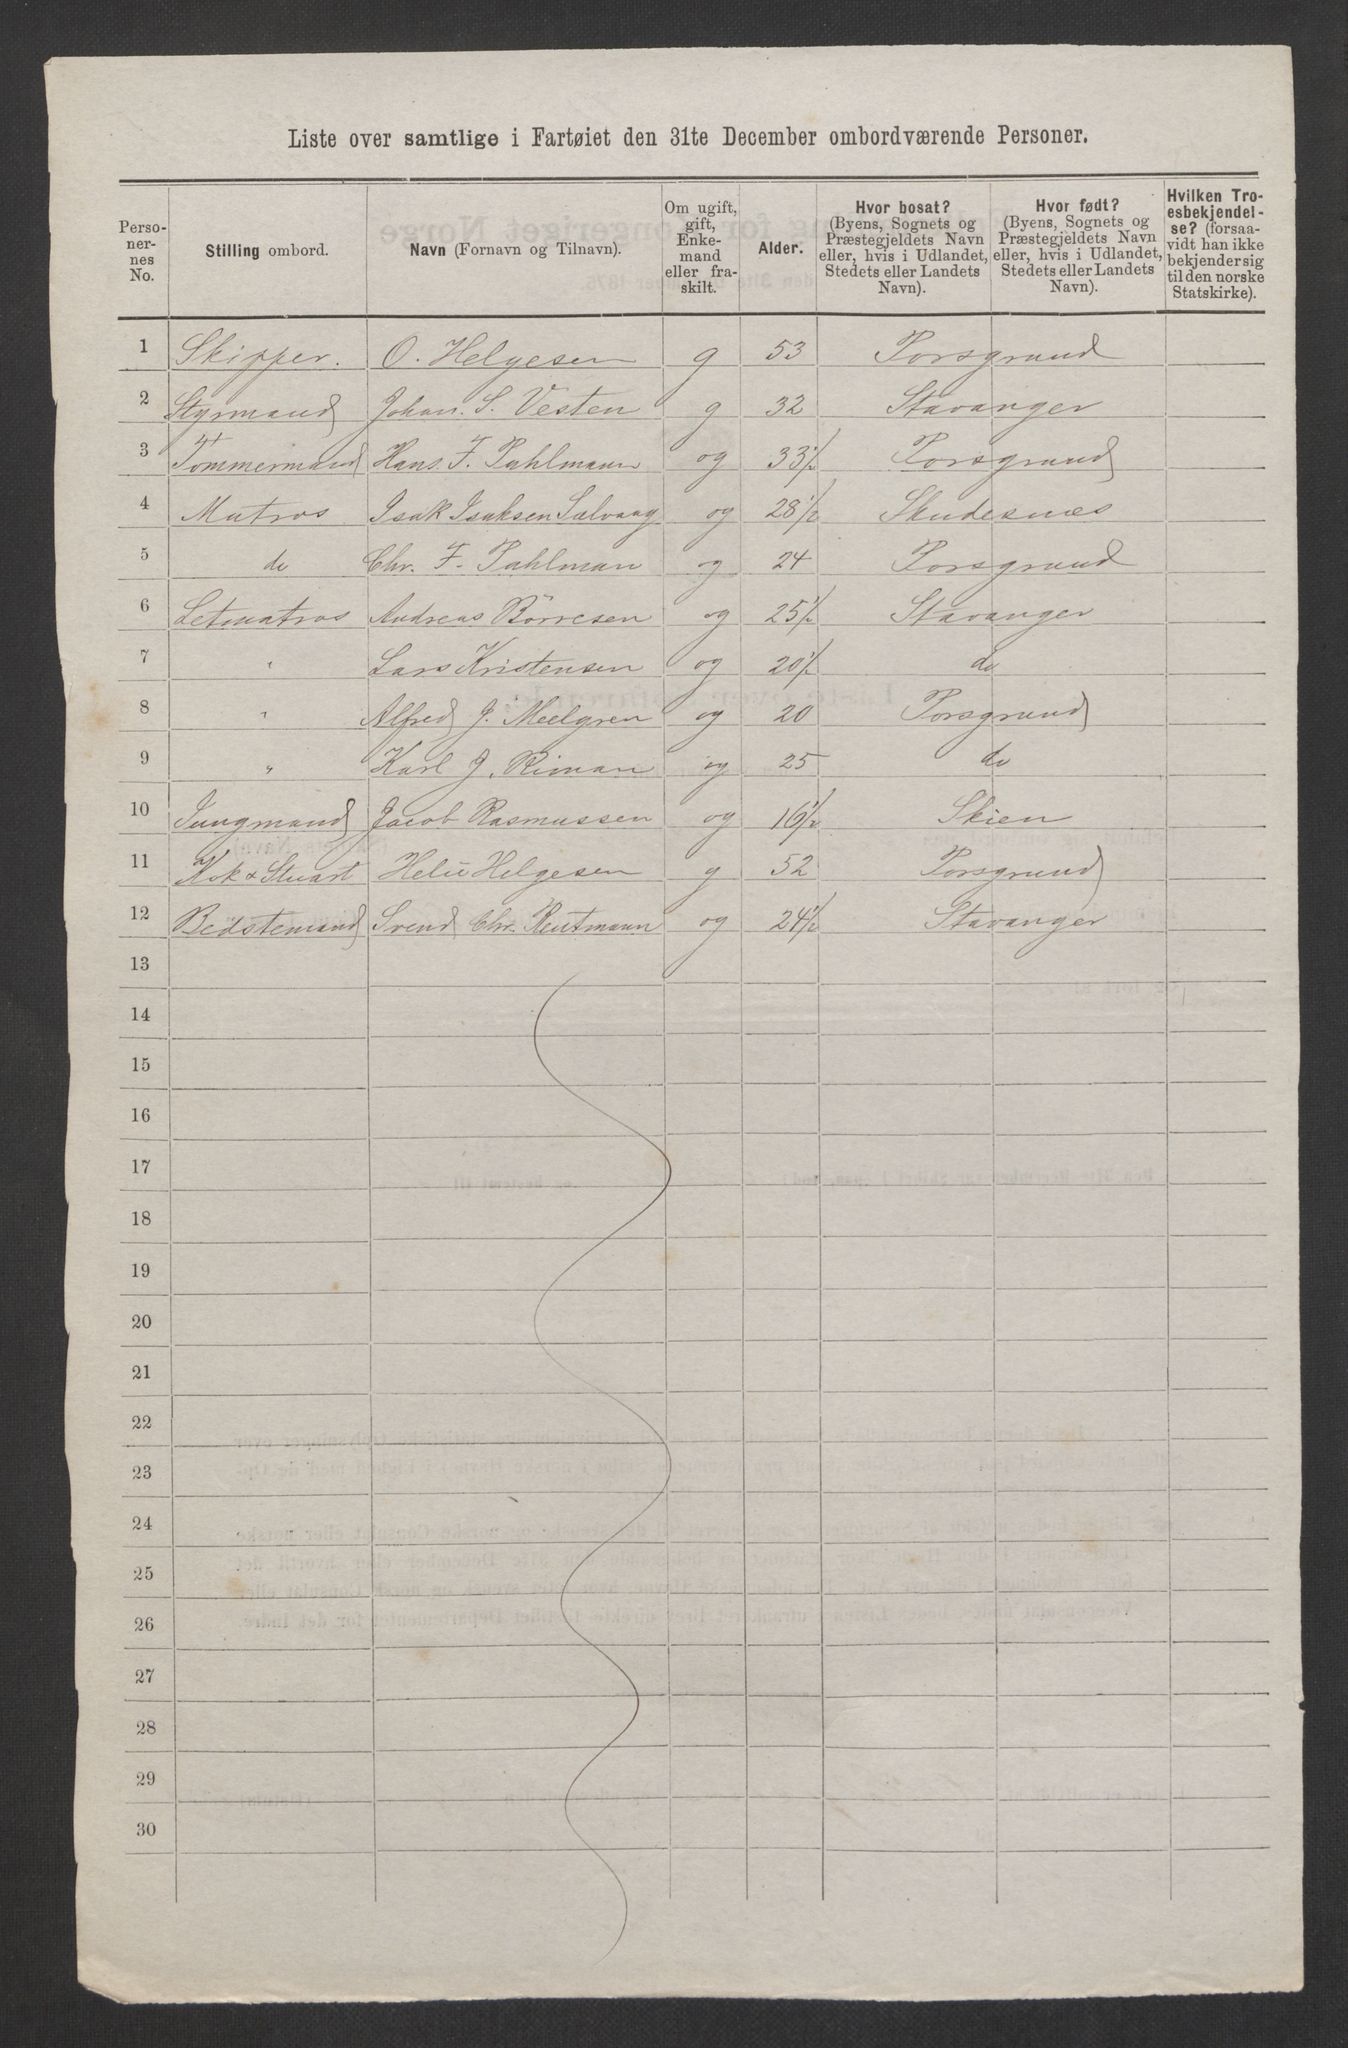 Liste over samtlige i Fartøiet den 31te December ombordværende Personer.
Perso-
nernes
No.
Stilling ombord.
Navn (Fornavn og Tilnavn).
Om ugift,
gift,
Enke-
mand
eller fra-
skilt.
Alder.
Hvor bosat?
(Byens, Sognets og
Præstegjeldets Navn
eller, hvis i Udlandet,
Stedets eller Landets
Navn).
Hvor født?
(Byens, Sognets og
Præstegjeldets Navn
eller, hvis i Udlandet,
Stedets eller Landets
Navn).
Hvilken Tro-
esbekjendel-
se? (forsaa-
vidt han ikke
bekjender sig
til den norske
Statskirke).
1 Skipper. O. Helgesen g 53 Porsgrund
2 Styrmand Johan. S. Vesten g 32 Stavanger
3 Tömmermand Hans. F. Pahlmann ug 33½ Porsgrund
4 Matros Isak Isaksen Salvaag ug 28½ Skudesnæs
5 do Chr. F. Pahlman ug 24 Porsgrund
6 Letmatros Andreas Börresen ug 25½ Stavanger
7 " Lars Kristensen ug 20½ do
8 " Alfred J. Meelgren ug 20 Porsgrund
9 " Karl J. Riman ug 25 do
10 Jungmand Jacob Rasmussen ug 16½ Skien
11 Kok & Stuart Helie Helgesen g 52 Porsgrund
12 Bedstemand Svend Chr. Reutmann ug 24½ Stavanger
13
14
15
16
17
18
19
20
21
22
23
24
25
26
27
28
29
30